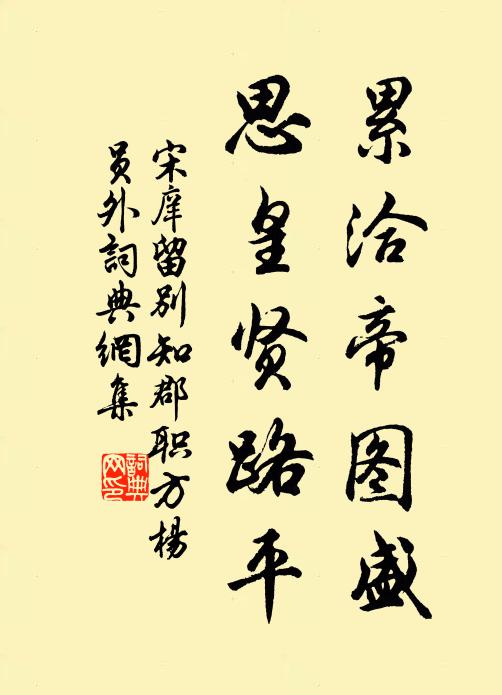 累洽帝图盛
思皇贤路平
宋庠留别知郡职方杨
员外词典網集
詞典
网印